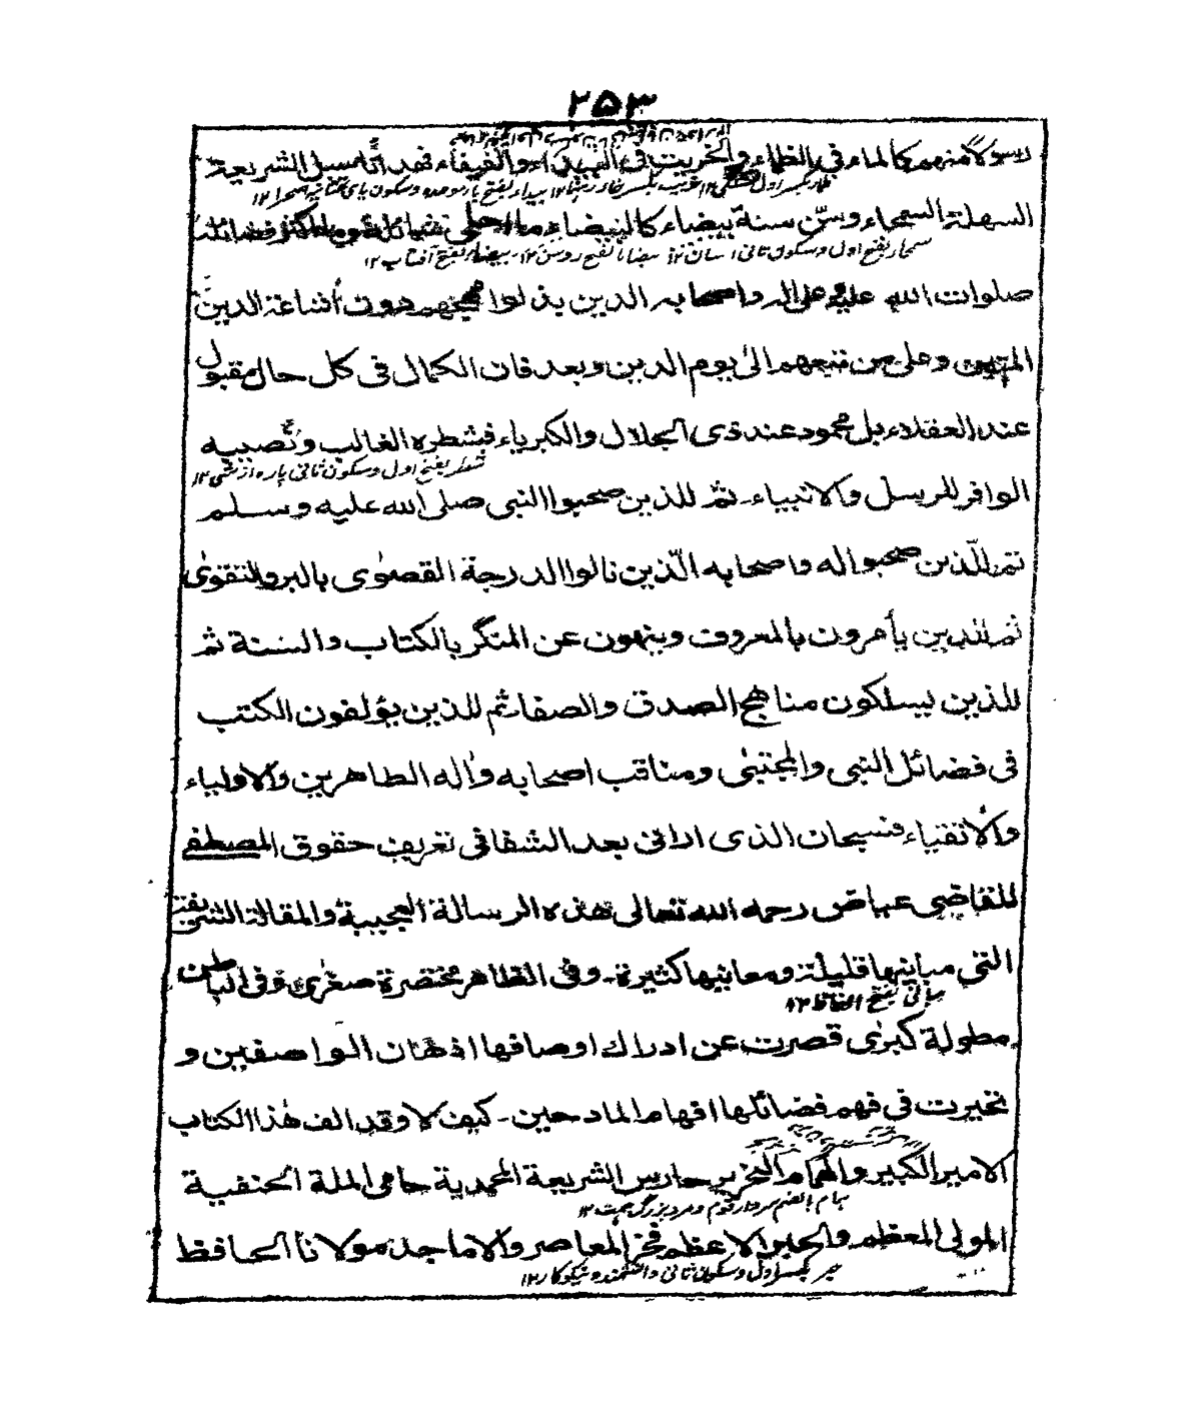 ٢٥٣
رسولا منهم كالماء فى الظماء والخريت فى البيداء والفيفاء فهدانا سبل الشريعة
السهلة السمحاء وسنّ سنة بيضاء كالبيضاء
سمحاء بفتح اول وسكون ثانى آسان ١٢ بيضاء بالفتح روشن ١٢ بيضاء بالفتح آفتاب ١٢
صلوات الله عليه وعلى اله واصحابه الذين بذلوا مهجهم دون اشاعة الدين
المتين وعلى من تبعهم الى يوم الدين وبعد فان الكمال فى كل حال مقبول
عند العقلاء بل محمود عند ذى الجلال والكبرياء فشطره الغالب ونصيبه
شطر بفتح اول وسكون ثانى پاره از شى ١٢
الوافر للرسل والانبياء۔ ثم للذين صحبوا النبى صلى الله عليه وسلم
ثم للّذين صحبوا اله واصحابه الّذين نالوا الدرجة القصوٰى بالبر والتقوٰى
ثم للذين يأمرون بالمعروف وينهون عن المنكر بالكتاب والسنة ثم
للذين يسلكون مناهج الصدق والصفا ثم للذين يؤلفون الكتب
فى فضائل النبى والمجتبٰى ومناقب اصحابه واٰله الطاهرين والاولياء
والأتقياء فسبحان الذى ارانى بعد الشفا فى تعريف حقوق المصطفے
للقاضى عياض رحمه الله تعالى هذه الرسالة العجيبة والمقالة الشريفة
التى مبانيها قليلة ومعانيها كثيرة۔ وفى الظاهر مختصرة صغرٰى وفى الباطن
مبانى بفتح الفاظ ١٢
مطولة كبرٰى قصرت عن ادراك اوصافها اذهان الواصفين و
تحيرت فى فهم فضائلها افهام المادحين۔ كيف لا وقد الف هٰذا الكتاب
الامير الكبير والهمام النحرير حارس الشريعة المحمدية حامى الملة الحنفية
ہمام بالضم سردار قوم ومرد بزرگ ہمت ١٢
المولى المعظم والحبر الاعظم فخر المعاصر والاماجد مولانا الحافظ
حبر بكسر اول وسكون ثانى دانشمند ونيكوكار ١٢